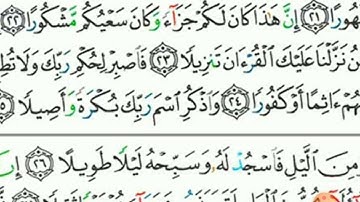 هُورًا ٢١ إِنَّ هَٰذَا كَانَ لَكُمْ جَزَآءً وَكَانَ سَعْيُكُم مَّشْكُورًا ٢٢
نَزَّلْنَا عَلَيْكَ الْقُرْءَانَ تَنزِيلًا ٢٣ فَاصْبِرْ لِحُكْمِ رَبِّكَ وَلَا تُطِ
هُمْ ءَاثِمًا أَوْ كَفُورًا ٢٤ وَاذْكُرِ اسْمَ رَبِّكَ بُكْرَةً وَأَصِيلًا
مِنَ الَّيْلِ فَاسْجُدْ لَهُ وَسَبِّحْهُ لَيْلًا طَوِيلًا ٢٦ إِنَّ